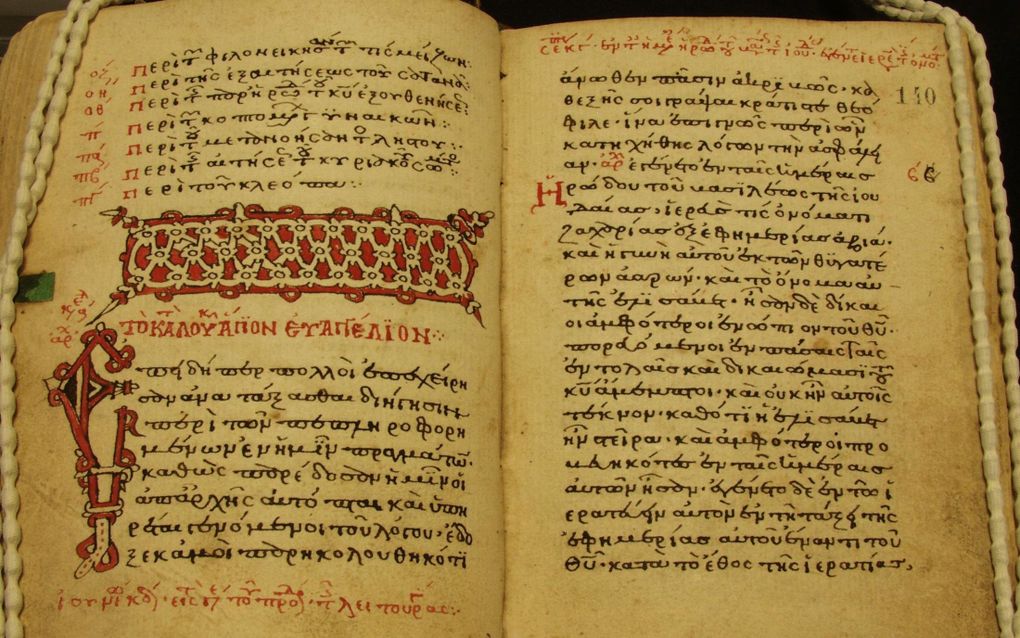 Περὶ τ φιλονεικησάντων τίς μείζων:
Περὶ τῆς ἐξαιτήσεως τοῦ σατανᾶ:
Περὶ τ
Περὶ τ κοπτομ γυναικῶν:
Περὶ τ μετανοήσαντος λῃστοῦ:
Περὶ τ αἰτήσεως τ κυριακοῦ σώμ:
Περὶ τοῦ κλεόπα:
ΤΟ ΚΑΤΑ ΛΟΥΚΑΝ ΑΓΙΟΝ ΕΥΑΓΓΕΛΙΟΝ:
Ἐπειδήπερ πολλοὶ ἐπεχείρη
σαν ἀνατάξασθαι διήγησιν
περὶ τῶν πεπληροφορη
μένων ἐν ἡμῖν πραγμάτων·
καθὼς παρέδοσαν ἡμῖν οἱ
ἀπαρχῆς αὐτόπται καὶ ὑπη
ρέται γενόμενοι τοῦ λόγου· ἔδο
ξε κἀμοὶ παρηκολουθηκότι
140
ἄνωθεν πᾶσιν ἀκριβῶς· κα
θεξῆς σοι γράψαι κράτιστε θεό
φιλε· ἵνα ἐπιγνῷς περὶ ὧν
κατηχήθης λόγων τὴν ἀσφάλει
αν· ἐγένετο ἐν ταῖς ἡμέραις
Ἡρώδου τοῦ βασιλέως τῆς ἰου
δαίας, ἱερεύς τις ὀνόματι
ζαχαρίας ἐξ ἐφημερίας ἀβιά·
καὶ ἡ γυνὴ αὐτοῦ ἐκ τῶν θυγατέ
ρων ἀαρών· καὶ τὸ ὄνομα αυ
τῆς ἐλισάβετ· ἦσαν δὲ δίκαι
οι ἀμφότεροι ἐνώπιον τοῦ θῦ·
πορευόμενοι ἐν πάσαις ταῖς
ἐντολαῖς καὶ δικαιώμασι τοῦ
κῦ ἄμεμπτοι· καὶ οὐκ ἦν αὐτοῖς
τέκνον· καθότι ἡ ἐλισάβετ
ἦν στεῖρα· καὶ ἀμφότεροι προ
βεβηκότες ἐν ταῖς ἡμέραις
αὐτῶν ἦσαν· ἐγένετο δὲ ἐν τῷ ἱ
ερατεύειν αὐτὸν ἐν τῇ τάξει τῆς
ἐφημερίας αὐτοῦ ἔναντι τοῦ
θῦ· κατὰ τὸ ἔθος τῆς ἱερατίας,